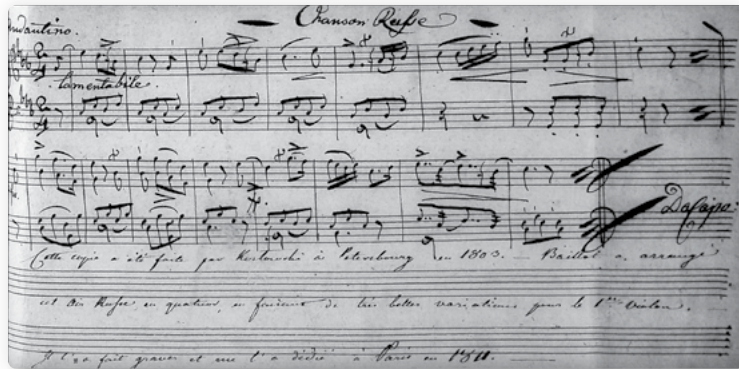 Chanson Russe
Andantino.
lamentabile.
Da Capo.
Cette copie a été faite par Koslovski à Petersbourg en 1803. — Baillot a arrangé
cet Air Russe en quatuor, en finissant de très belles variations pour le 1er Violon.
Il l'a fait graver et me l'a dédié à Paris en 1811. —